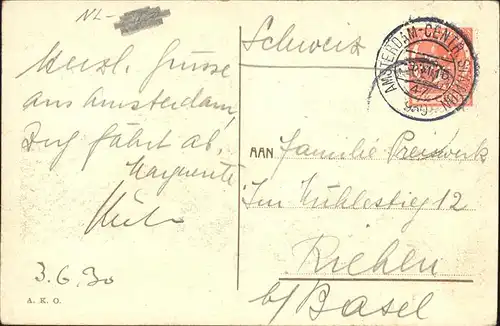 NL-
Herzl. Grüsse
aus Amsterdam,
Zug fährt ab,
Marguerite
3.6.30
A. K. O.
Schweiz
AMSTERDAM-CENTR. STATION
AAN Familie Preiswerk
Im Mühlestieg 12
Riehen
b/ Basel